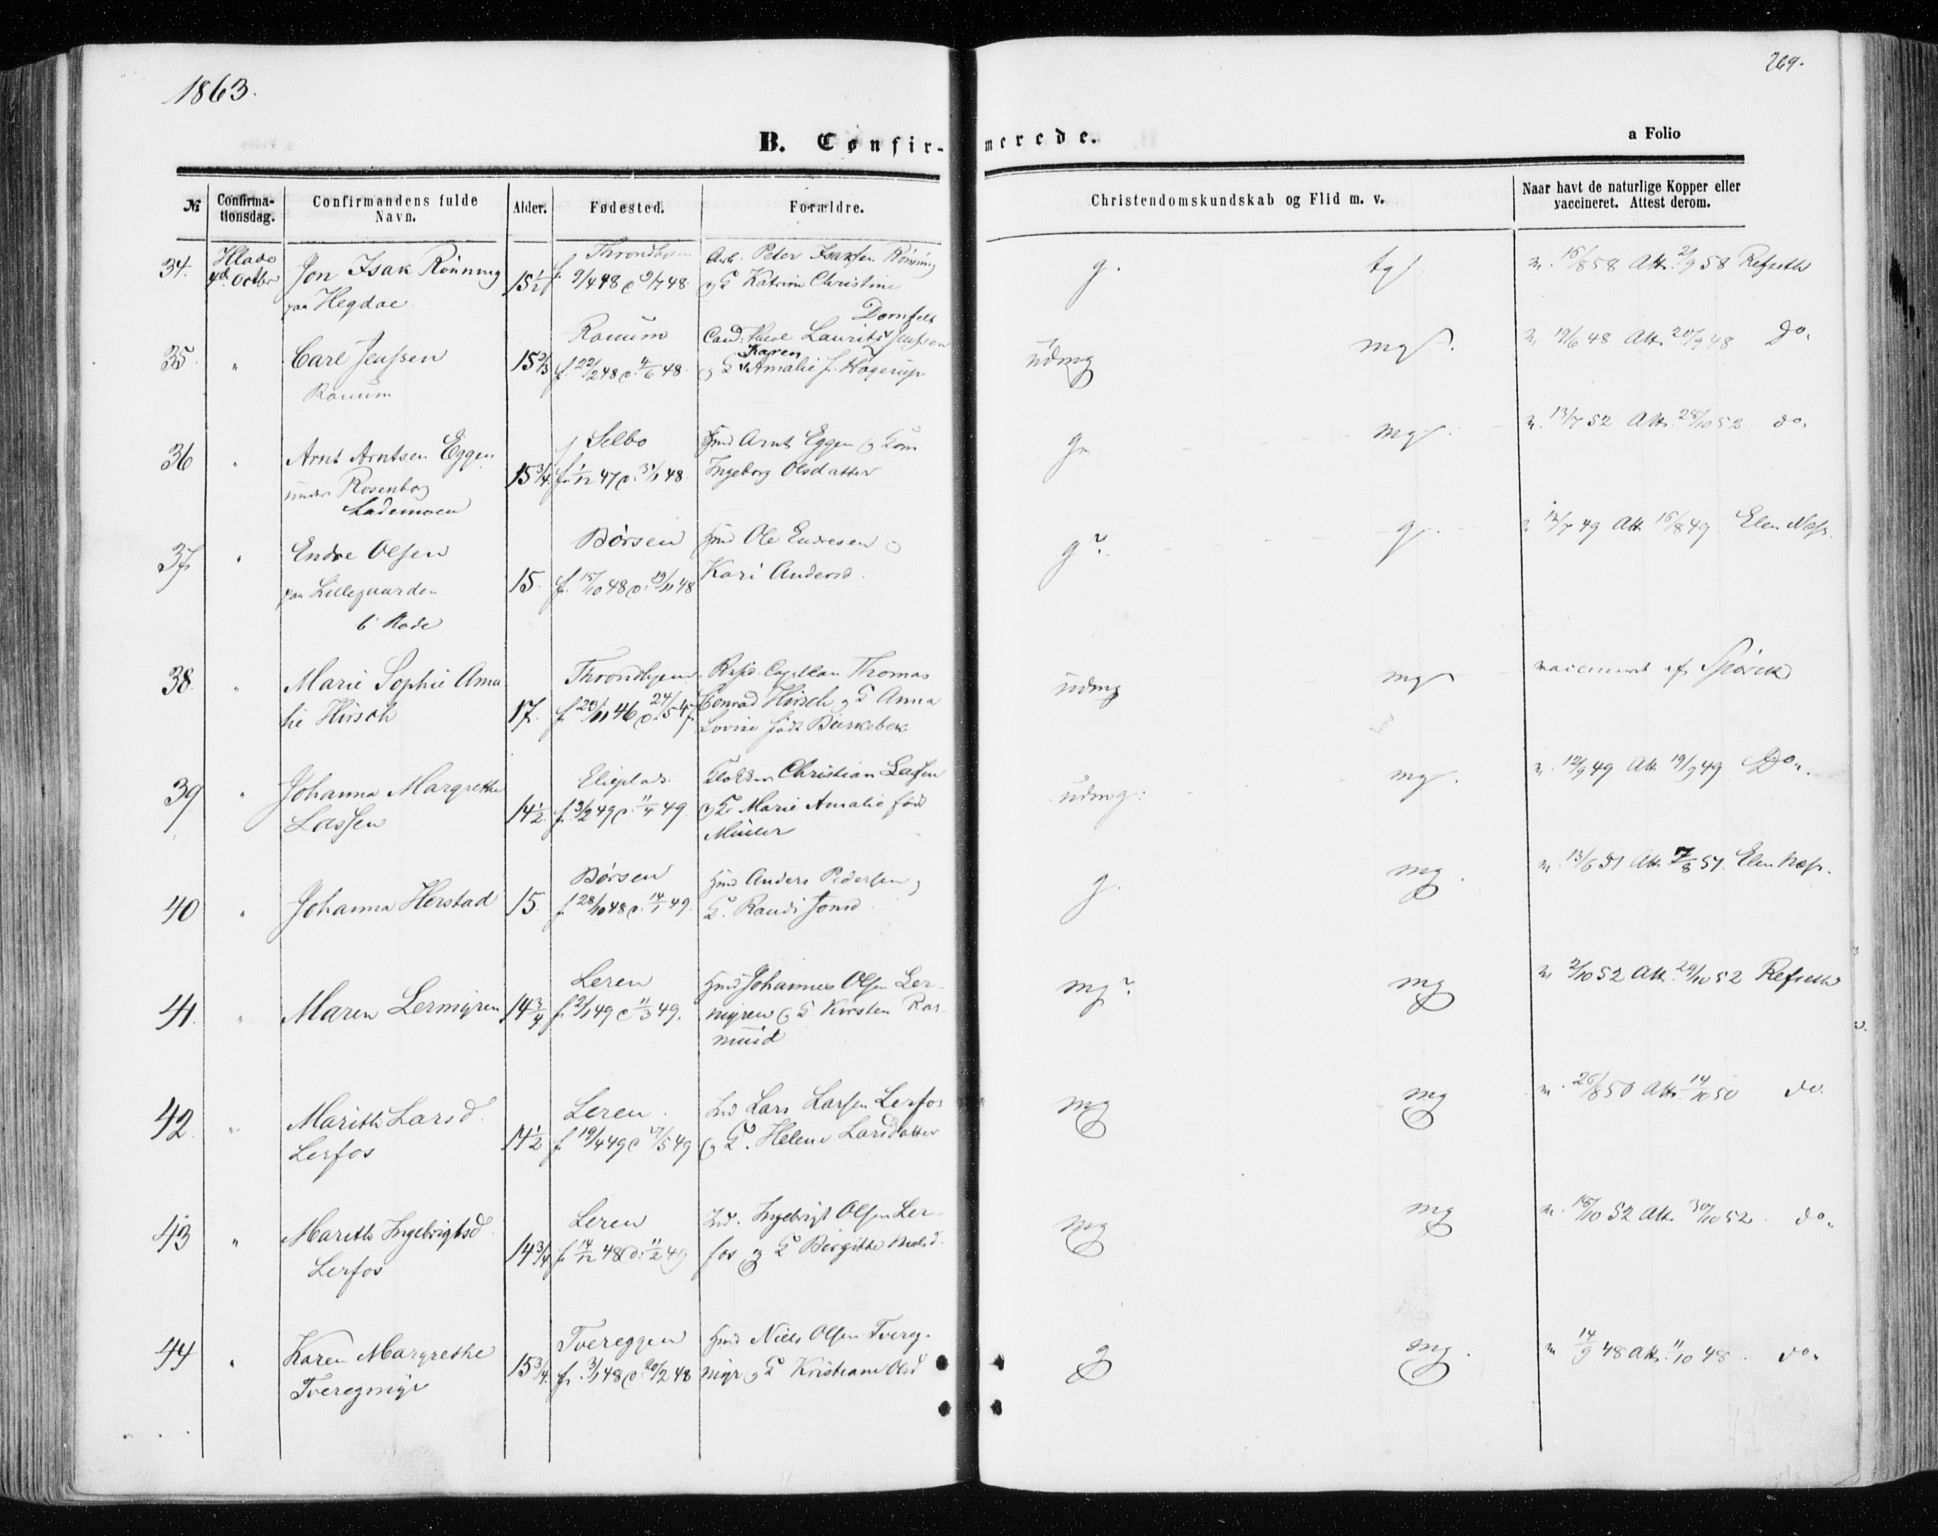 1863.
269.
B. Confir-
merede.
a Folio
№
Confirma-
tionsdag.
Confirmandens fulde
Navn.
Alder.
Fødested.
Forældre.
Christendomskundskab og Flid m. v.
Naar havt de naturlige Kopper eller
vaccineret. Attest derom.
34.
Hlade
4d. Octbr
Jon Isak Rönning
paa Hegdae
15½
Throndhjem
f. 9/4 48 d
Arb. Peter Isaksen Rönning
og K Katrine Christine
Dornfelt
g.
tg.
v. 15/8 58 Att. 2/9 58 Refseth
35.
"
Carl Jenssen
Ranum
15⅔
Ranum
f. 22/2 48 d. 4/6 48.
Cand. Laurits Jenssen
Karen
og K Amalie f. Hagerup
udmg
mg.
v. 19/6 48 Att. 20/9 48 Do.
36
"
Arnt Arntsen Eggen
under Rosenborg
Lademoen
15¾
Selbo
f. 1/12 47 d. 3/1 48.
Hmd Arnt Eggen og Kone
Ingeborg Olsdatter
g.
mg.
v. 13/7 52 Att. 28/10 52 do.
37.
"
Endre Olsen
paa Lillegaarden
15.
Børsen
f. 15/10 48 d. 19/11 48
Hmd Ole Endresen og
Kari Andersd.
g?
g.
v. 12/7 49 Att. 15/8 49 Elen Næss.
38.
"
Marie Sophie Ama
lie Hirsch
17.
Throndhjem
f. 20/11 46 d. 24/5 47.
Resid. Capellan Thomas
Conrad Hirsch og K Anna
Lovise født Birkebek
udmg
mg
vaccineret af
39
"
Johanna Margrethe
Lassen
14½
f. 3/2 49 d. 11/4 49.
Klokker Christian Lassen
og K. Marie Amalie født
Müller
udmg.
mg.
v. 12/9 49 Att 19/9 49 Do.
40
"
Johanna Herstad
15.
Børsen
f. 28/10 48 d. 14/1 49.
Hmd Anders Pedersen og
K. Randi Jonsd.
g.
mg.
v. 13/6 51 Att. 7/8 51. Elen Næss.
41.
"
Maren Lermyren
14¾
Leren
f. 2/1 49 d 11/3 49.
Hmd Johannes Olsen Ler-
myren og K Kirsten Ras-
musd
mg?
mg
v. 2/10 52 Att. 29/10 52 Refseth
42.
"
Marith Larsd.
Lerfos
14½
Leren.
f. 19/4 49 d 17/5 49
Ind Lars Larsen Lerfos
og K. Helene Larsdatter
mg
mg
v. 26/8 50 Att. 14/10 50 do.
43
"
Marith Ingebrigtsd.
Lerfos
14¾
Leren
f. 14/12 48 d. 11/2 49
Ind. Ingebrigt Olsen Ler-
fos og K Birgitte Nielsd.
mg
mg
v. 15/10 52 Att. 30/10 52. do.
44
"
Karen Margrethe
Tveregmyr
15¾
Tvereggen
f. 3/1 48 d. 20/2 48
Hmd Niels Olsen Tvereg-
myr og K Kristiane Olsd
g
mg.
v 14/9 48 Att. 11/10 48. do.